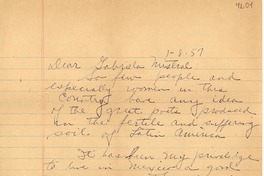 4201
1-8-57
Dear Gabriela Mistral:
So few people and
especially women in this
Country have any idea
of the great poets produced
in the fertile and suffering
soils of Latin America.
It has been my privilege
to live in Mexico a good